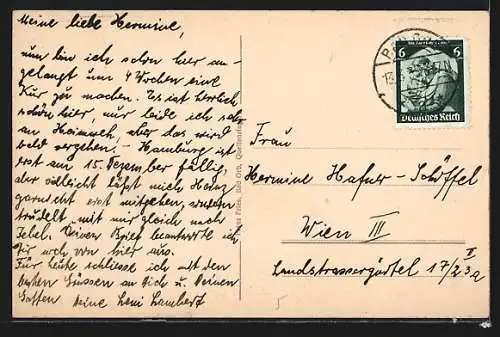 Meine liebe Hermine,
nun bin ich schon hier an-
gelangt um 4 Wochen eine
Kur zu machen. Es ist herrlich
schön hier, nur leide ich sehr
an Heimweh, aber das wird
bald vergehen. - Hamburg ist
erst am 15. Dezember fällig,
aber vielleicht läßt mich Heinz
garnicht erst mitgehen, sondern
trudelt mit mir gleich nach
Deinen Brief beantworte ich
Dir noch von hier aus.
Für heute schließe ich mit den
besten Grüssen an Dich u. Deinen
Gatten. Deine Leni Lambert
Bad Orb
6 6
Deutsches Reich
Frau
Hermine Hafner-Schöffel
Wien III
Landstrassergürtel 17/23a
II
5